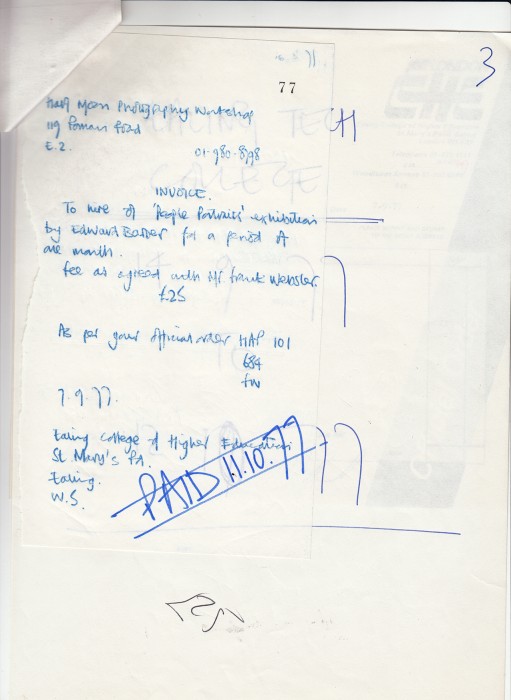 3
77
Half Moon Photography Workshop
119 Roman Road
E.2.
01-980-8798
INVOICE.
To hire of 'People Portraits' exhibition
by Edward Barber for a period of
one month.
fee as agreed with Mr Frank Webster.
£25
As per your official order HAP 101
684
fw
7.9.77.
Ealing College of Higher Education
St Mary's Rd.
Ealing.
W.5.
PAID 11.10.77